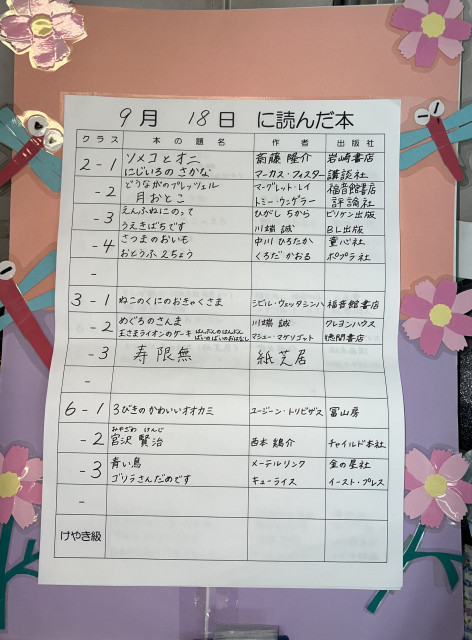 9月 18日 に読んだ本
クラス 本の題名 作者 出版社
2-1 ソメコとオニ 斎藤 隆介 岩崎書店
にじいろの さかな マーカス・フィスター 講談社
-2 どうながのプレッツェル マーグレット・レイ 福音館書店
月おとこ トミー・ウンゲラー 評論社
-3 えんふねにのって ひがし ちから ビリケン出版
うえきばちです 川端 誠 BL出版
-4 さつまのおいも 中川 ひろたか 童心社
おとうふ 2ちょう くろだ かおる ポプラ社
-
3-1 ねこのくにのおきゃくさま シビル・ウェッタシンハ 福音館書店
-2 めぐろのさんま 川端 誠 クレヨンハウス
王さまライオンのケーキ はんぶんのはんぶん ばいのばいのおはなし マシュー・マケリゴット 徳間書店
-3 寿限無 紙芝居
-
6-1 3びきのかわいいオオカミ ユージーン・トリビザス 冨山房
みやざわ けんじ
-2 宮沢 賢治 西本 鶏介 チャイルド本社
-3 青い鳥 メーテルリンク 金の星社
ゴリラさんだめです キューライス イースト・プレス
-
けやき級